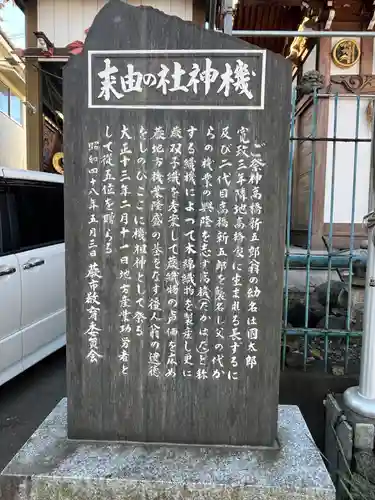 機神社の由来
ご祭神高橋新五郎翁の幼名は国太郎
寛政三年當地高橋家に生まれる長ずるに
及び二代目高橋新五郎を襲名し父の代か
らの機業の興隆を志す高機(たかはた)と称
する織機によつて木綿織物を製産し更に
蕨双子織を考案して蕨織物の声価を広め
蕨地方機業隆盛の基をなす後人翁の遺徳
をしのびここに機祖神として祭る
大正十三年二月十一日地方産業功労者と
して従五位を贈らる
昭和四十八年五月三日 蕨市教育委員会